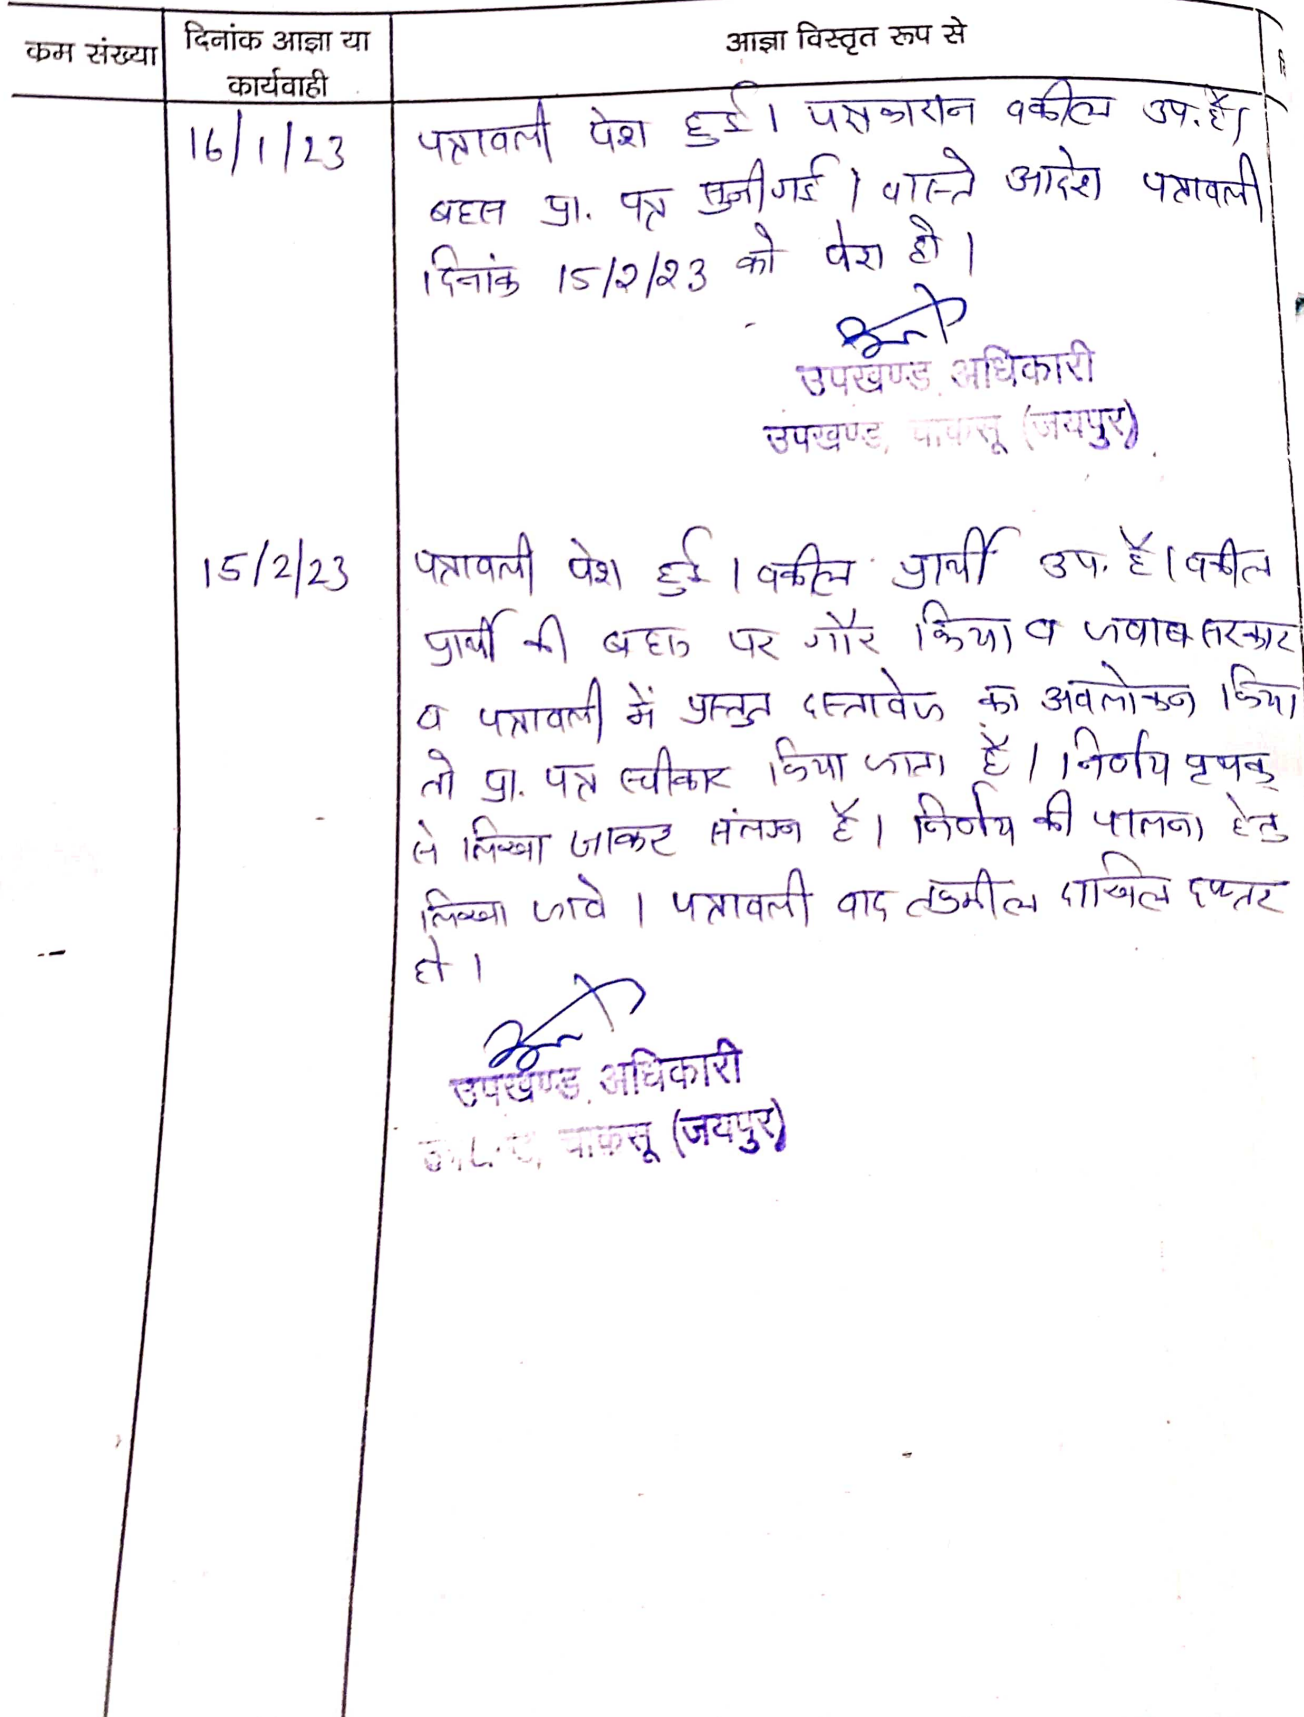 कम संख्या
दिनांक आज्ञा या
कार्यवाही
आज्ञा विस्तृत रूप से
16/1/23
पत्रावली पेश हुई। पक्षकारान वकील उप. है।
बहस प्रा. पत्र सुनी गई। वास्ते आदेश पत्रावली
दिनांक 15/2/23 को पेश हो।
उपखण्ड अधिकारी
उपखण्ड, चाकसू (जयपुर)
15/2/23
पत्रावली पेश हुई। वकील प्रार्थी उप. है। वकील
प्रार्थी की बहस पर गौर किया व जवाब सरकार
व पत्रावली में प्रस्तुत दस्तावेज का अवलोकन किया
तो प्रा. पत्र स्वीकार किया जाता है। निर्णय पृथक
से लिखा जाकर संलग्न है। निर्णय की पालना हेतु
लिखा जावे। पत्रावली बाद तकमील दाखिल दफ्तर
हो।
उपखण्ड अधिकारी
चाकसू (जयपुर)